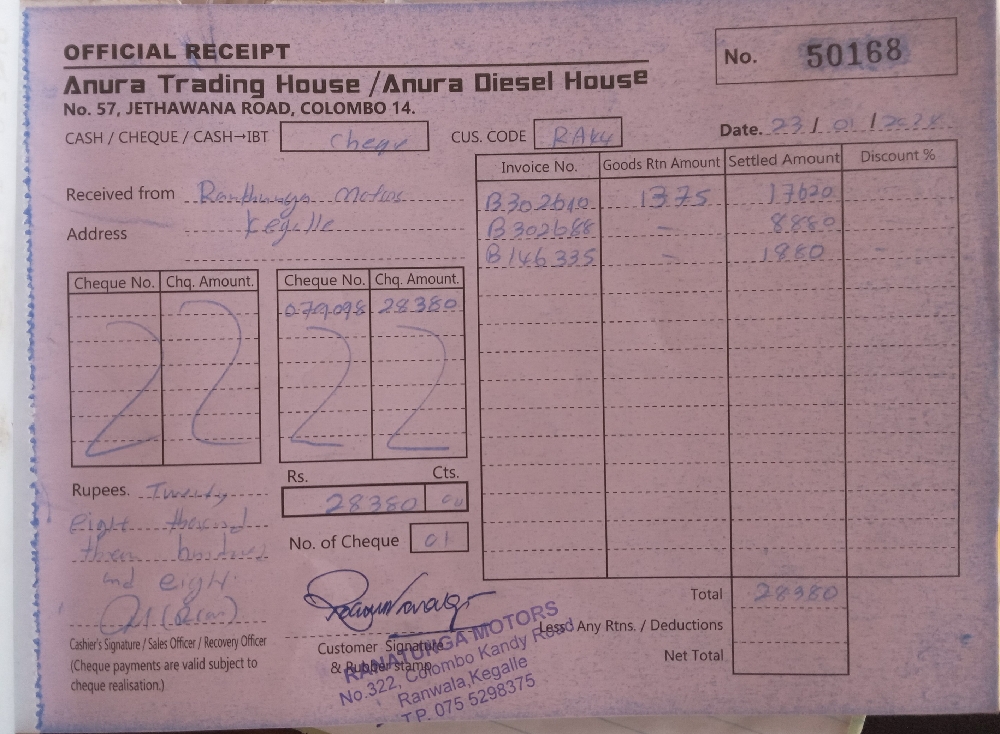 OFFICIAL RECEIPT
No. 50168
Anura Trading House / Anura Diesel House
No. 57, JETHAWANA ROAD, COLOMBO 14.
CASH / CHEQUE / CASH→IBT Cheque CUS. CODE
Date. 23 / 01 /
Invoice No. Goods Rtn Amount Settled Amount Discount %
Received from Motors
Address Kegalle
B302610 1375 17620
B302688 - 8880
B146335 - 1880 -
Cheque No. Chq. Amount. Cheque No. Chq. Amount.
079098 28380
Rs. Cts.
28380
Rupees. Twenty
eight thousand
three hundred
and eight
No. of Cheque 01
Total 28380
Less: Any Rtns. / Deductions
Net Total
Cashier's Signature / Sales Officer / Recovery Officer
(Cheque payments are valid subject to
cheque realisation.)
Customer Signature
& Rubber stamp
RANATUNGA MOTORS
No.322, Colombo Kandy Road
Ranwala,Kegalle
T.P. 075 5298375